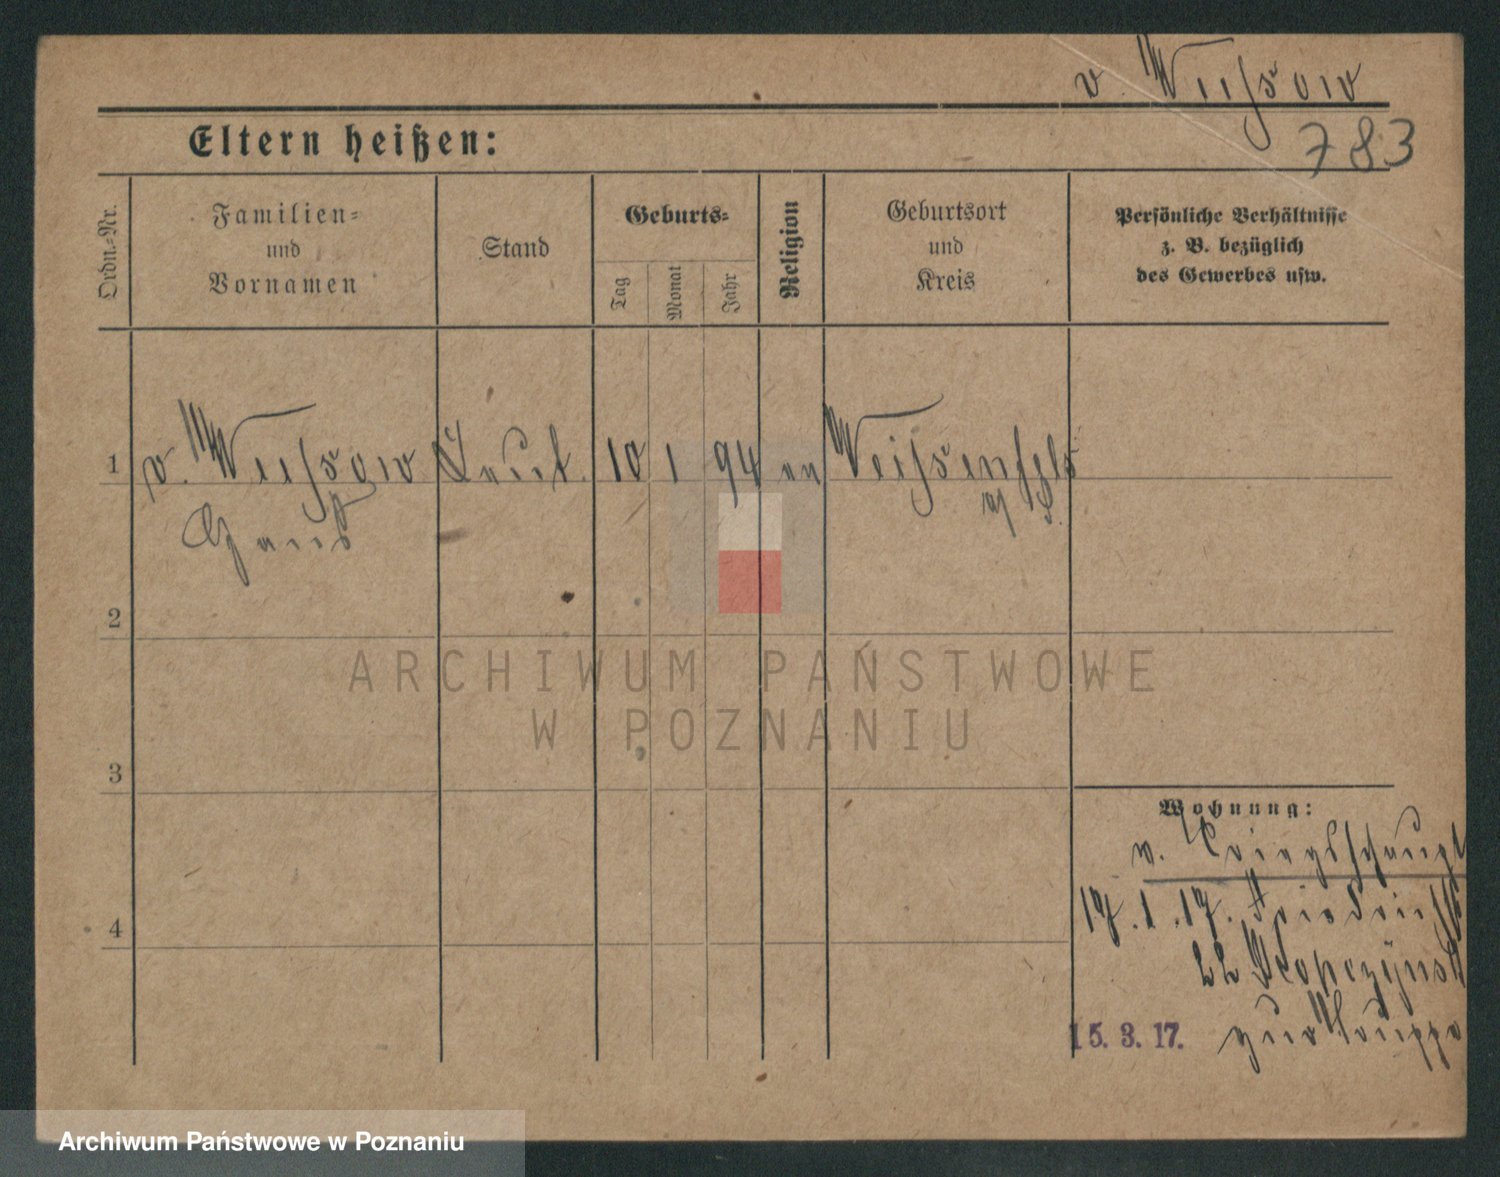 v. Weissow
783
Eltern heißen:
Ordn.-Nr.
Familien-
und
Vornamen
Stand
Geburts-
Tag
Monat
Jahr
Religion
Geburtsort
und
Kreis
Persönliche Verhältnisse
z. B. bezüglich
des Gewerbes usw.
1
v. Weissow Leut. 10 1 94 ev Weissenfels
Hans a/S.
2
ARCHIWUM PAŃSTWOWE
W POZNANIU
3
Wohnung:
v. Kriegsschaupl
4
17. 1. 17.
22
15. 3. 17. zur Truppe
Archiwum Państwowe w Poznaniu